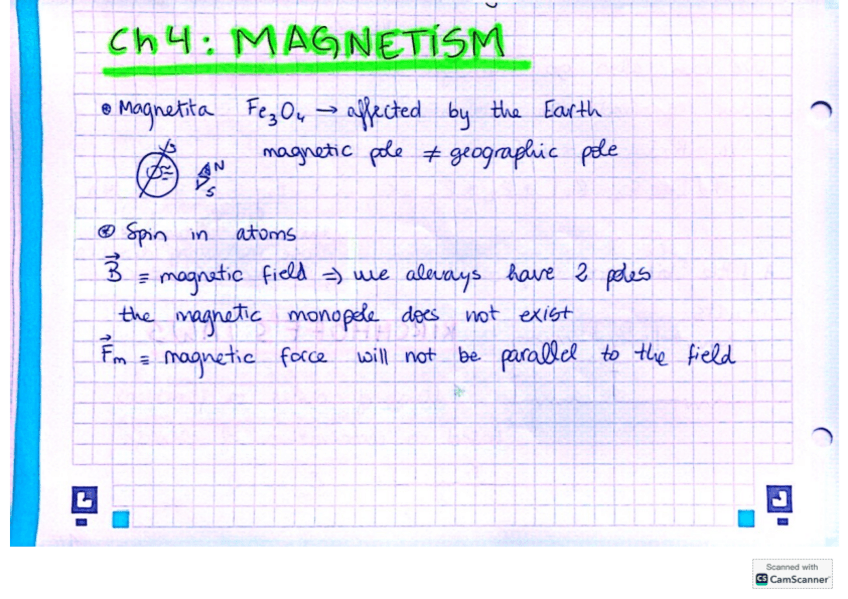 Ch 4: MAGNETISM
Magnetita Fe₃O₄ → affected by the Earth
magnetic pole ≠ geographic pole
N
S
Spin in atoms
B⃗ ≡ magnetic field ⇒ we always have 2 poles
the magnetic monopole does not exist
F⃗m ≡ magnetic force will not be parallel to the field
Scanned with
CS CamScanner